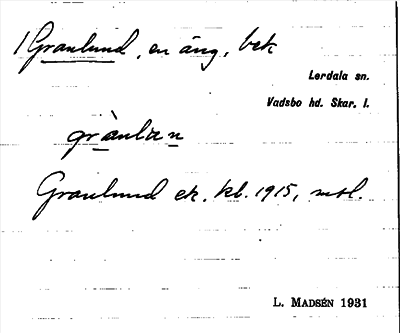 1 Granlund, en äng, bek
Lerdala sn.
Vadsbo hd. Skar. l.
grànlan
Granlund ek. kb. 1915, mtl.
L. MADSÉN 1931